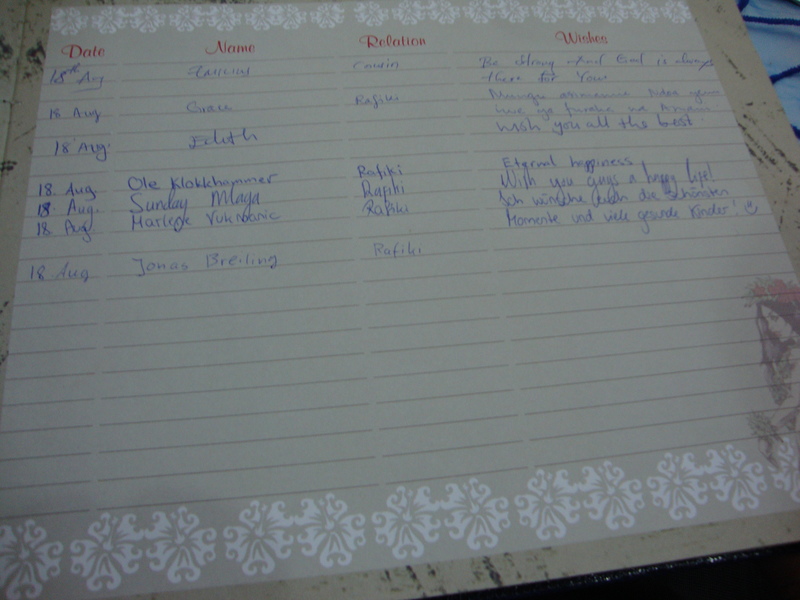 Date Name Relation Wishes
18th Aug Cousin Be strong and God is always
there for You
18 Aug Grace Rafiki Mungu
ya furaha na Amani
18 Aug. Edith wish you all the best.
18. Aug Ole Klokkhammer Rafiki Eternal happiness
18. Aug. Sunday Mlaga Rafiki Wish you guys a happy life!
18 Aug Marlene Rafiki Ich wünsche Euch die schönsten
Momente und viele gesunde Kinder!
18 Aug Jonas Breiling Rafiki